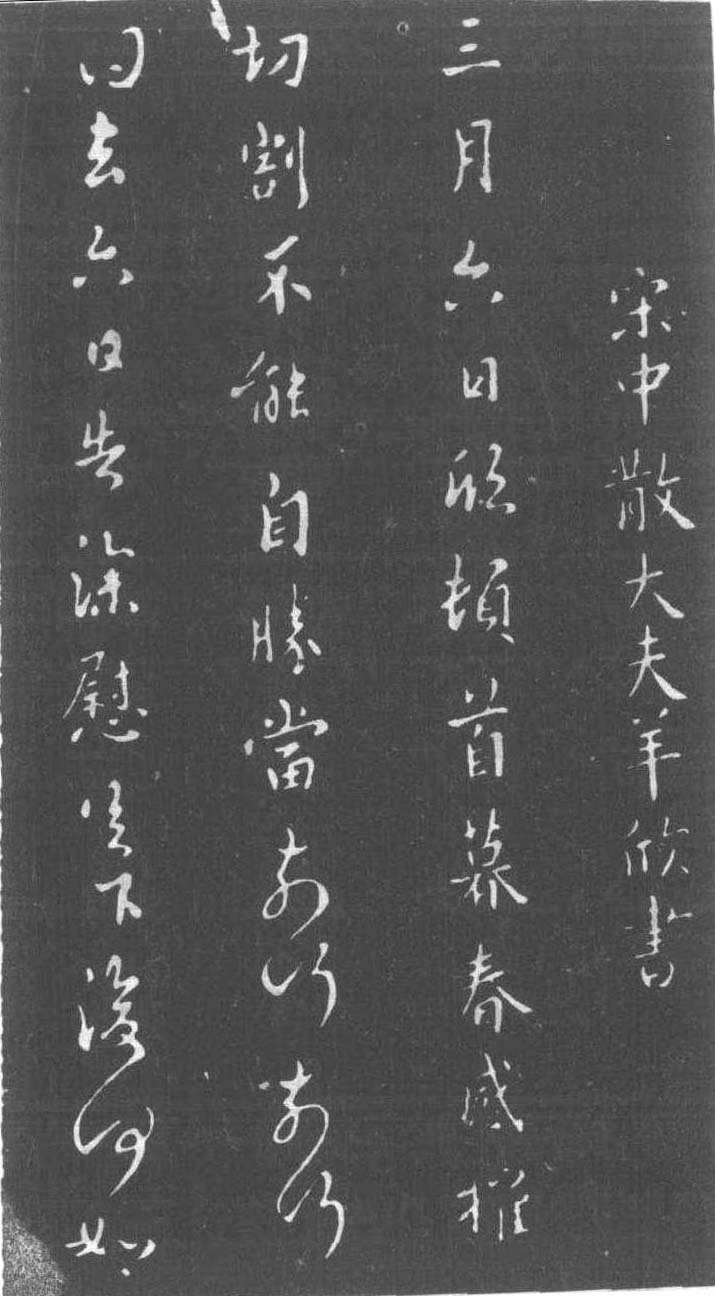 宋中散大夫羊欣書
三月六日欣頓首暮春感摧
切割不能自勝當奈何奈何
去六日告深慰足下復何如